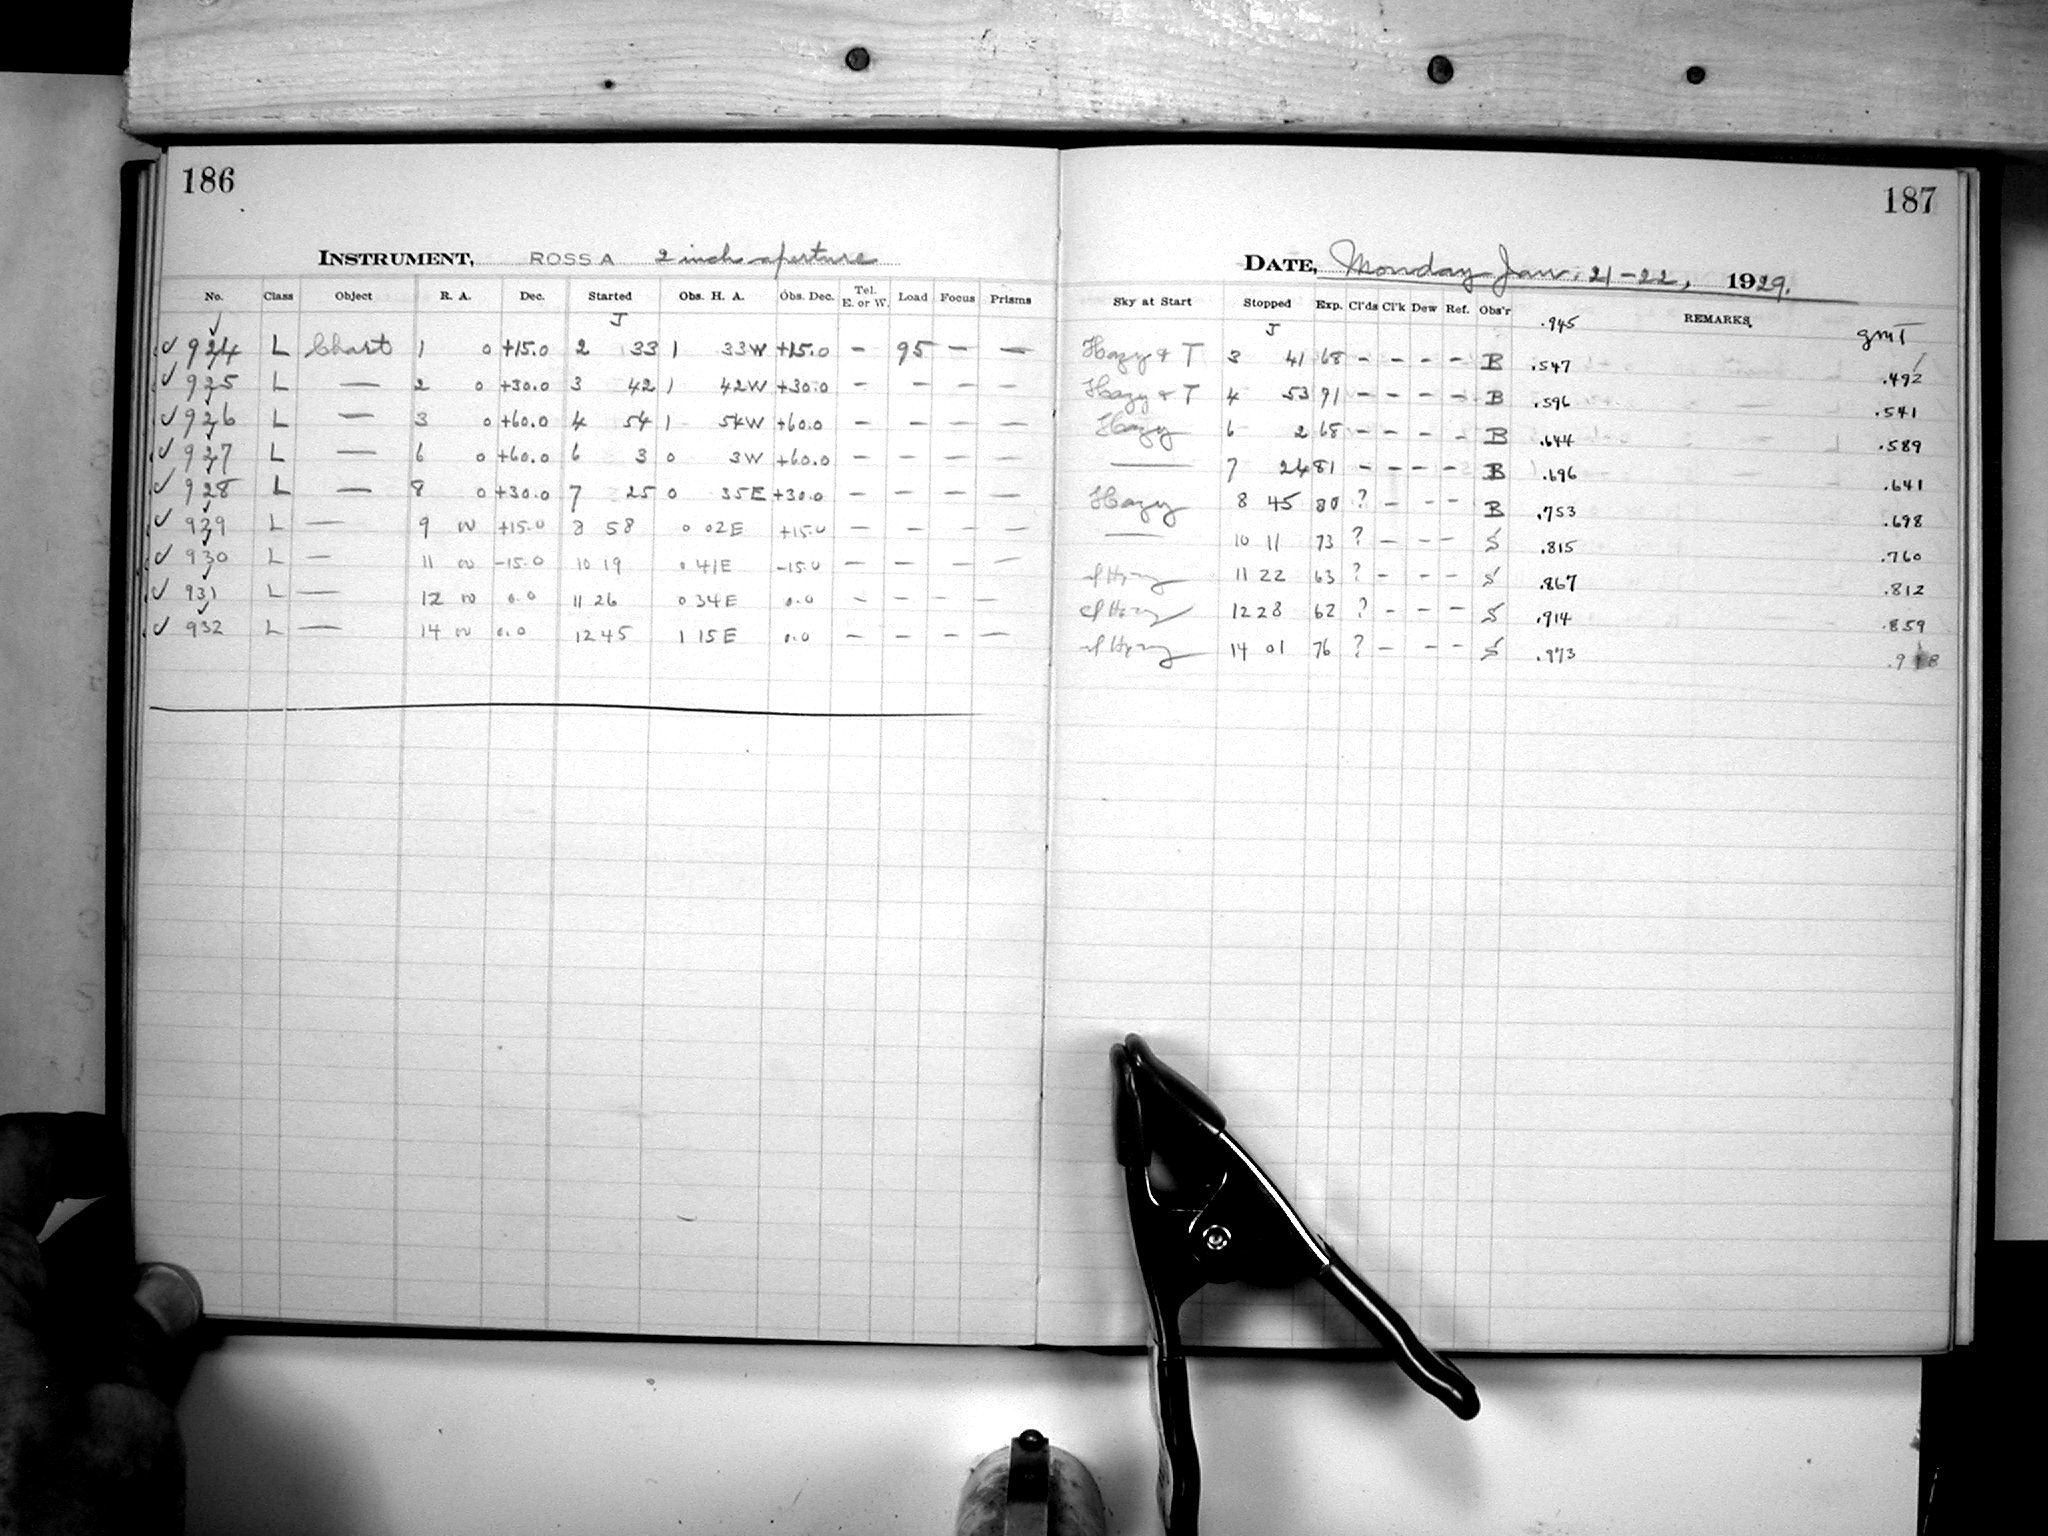 186
INSTRUMENT, ROSS A 2 inch aperture
No. Class Object R. A. Dec. Started Obs. H. A. Obs. Dec. Tel. E. or W. Load Focus Prisms
J
✓ 924 L Chart 1 0 +15.0 2 33 1 33W +15.0 – 95 – –
✓ 925 L — 2 0 +30.0 3 42 1 42W +30.0 – – – –
✓ 926 L — 3 0 +60.0 4 54 1 54W +60.0 – – – –
✓ 927 L — 6 0 +60.0 6 3 0 3W +60.0 – – – –
✓ 928 L — 8 0 +30.0 7 25 0 35E +30.0 – – – –
✓ 929 L — 9 00 +15.0 8 58 0 02E +15.0 – – – –
✓ 930 L — 11 00 -15.0 10 19 0 41E -15.0 – – – –
✓ 931 L — 12 00 0.0 11 26 0 34E 0.0 – – – –
✓ 932 L — 14 00 0.0 12 45 1 15E 0.0 – – – –
187
DATE, Monday Jan. 21-22, 1929.
Sky at Start Stopped Exp. Cl'ds Cl'k Dew Ref. Obs'r REMARKS
J .945 GMT
Hazy & T 3 41 68 – – – – B .547 .492
Hazy & T 4 53 71 – – – – B .596 .541
Hazy 6 2 68 – – – – B .644 .589
— 7 24 81 – – – – B .696 .641
Hazy 8 45 80 ? – – – B .753 .698
— 10 11 73 ? – – – S .815 .760
Hazy 11 22 63 ? – – – S .867 .812
Hazy 12 28 62 ? – – – S .914 .859
Hazy 14 01 76 ? – – – S .973